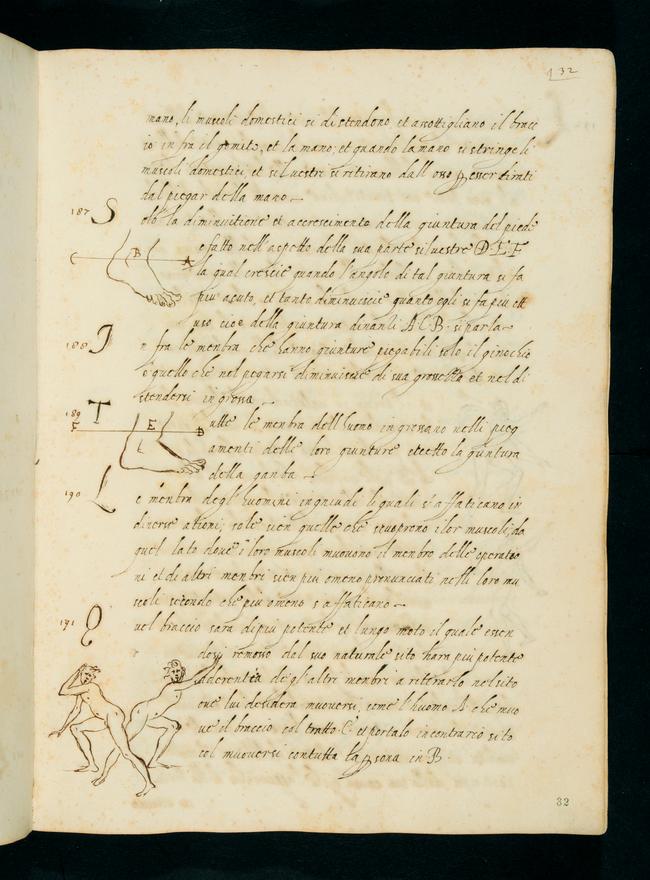 132
mano, li muscoli domestici si distendono et assottigliano il bracc
io in fra il gomito, et la mano; et quando la mano si stringe li
muscoli domestici, et siluestri si ritirano dall' osso p esser tirati
dal piegar della mano.
187 Solo la diminuitione et accrescimento della giuntura del piede
e fatto nell' aspetto della sua parte siluestre D E F
C B A
la qual crescie quando l'angolo di tal giuntura si fa
piu acuto, et tanto diminuiscie quanto egli si fa piu ott
uso cioe della giuntura dinanzi A C B. si parla.
188 In fra le menbra che hanno giunture piegabili solo il ginochio
e quello che nel piegarsi diminuiscie di sua grossezza et nel di
stendersi ingrossa.
189 Tutte le menbra dell' huomo ingrossano nelli pieg
F E D
amenti delle loro giunture eccetto la giuntura
della ganba.
190 Le menbra degl' huomini ingniudi li quali s'affaticano in
diuerse ationi, sole sien quelle che scuoprono i lor muscoli, da
quel lato doue i loro muscoli muouono il menbro delle operatio
ni et di altri menbri sien piu o meno pronunciati nelli loro mu
scoli secondo che piu o meno s'affaticano.
191 Quel braccio sara di piu potente et lungo moto il quale essen
dosi remosso dal suo naturale sito hara piu potente
adderentia degl' altri menbri a ritirarlo nel sito
oue lui desidera muouersi, come l'huomo A che muo
ue il braccio col tratto C. et portalo in contrario sito
col muouersi con tutta la psona in B.
32